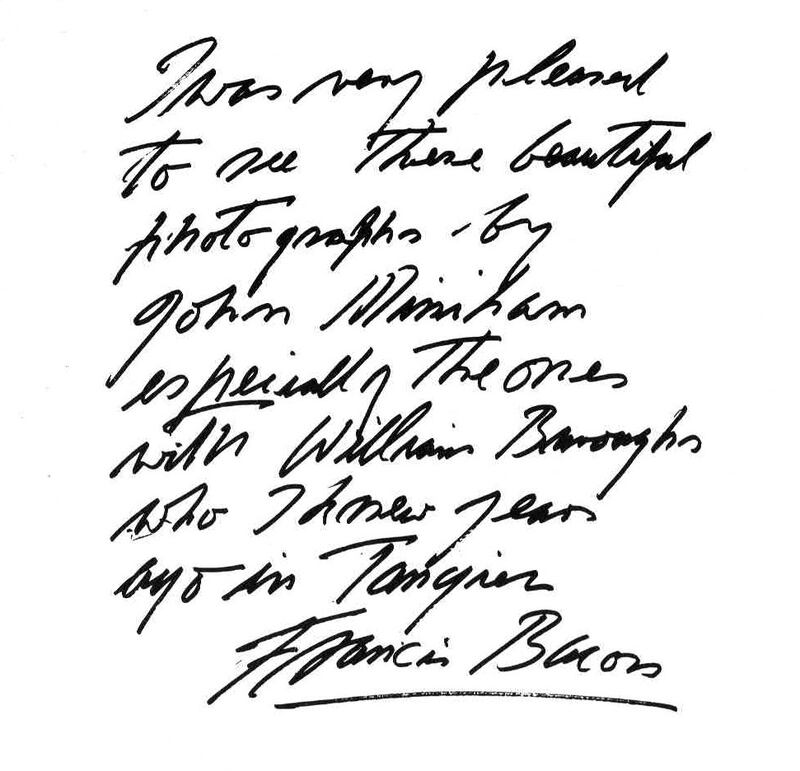 I was very pleased
to see these beautiful
photographs - by
John Miniham
especially the ones
with William Burroughs
who I knew years
ago in Tangier
Francis Bacon